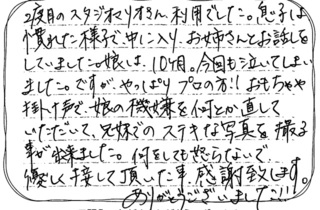 2度目のスタジオマリオさん利用でした。息子は
慣れた様子で中に入り、お姉さんとお話しを
していました。娘は、10ヶ月。今回も泣いてしまい
ました。ですが、やっぱりプロの方!!おもちゃや
掛け声で、娘の機嫌を何とか直して
いただいて、兄妹でのステキな写真を撮る
事が出来ました。何をしても怒らないで
優しく接して頂いた事、感謝致します。
ありがとうございました!!!